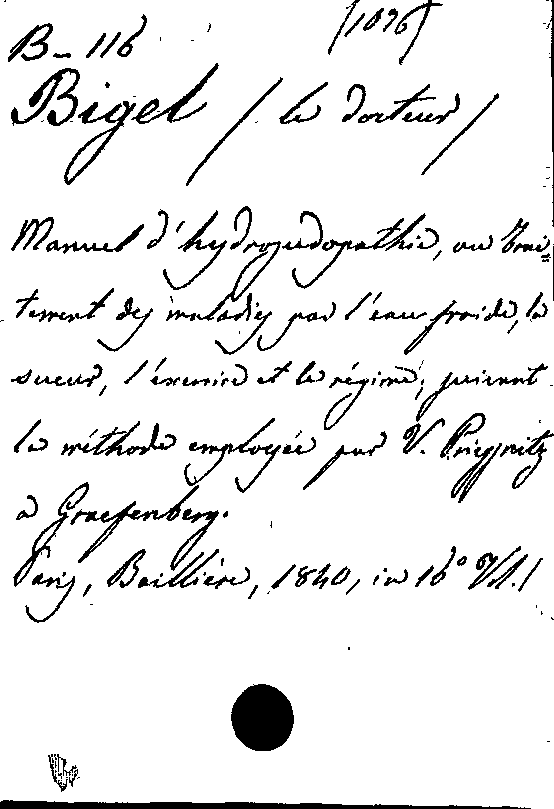 B-116 (1096)
Bigel (le docteur)
Manuel d'hydrosudopathie, ou Trai=
tement des maladies par l'eau froide, la
sueur, l'exercice et le régime; suivant
la méthode employée par V. Priessnitz
à Graefenberg.
Paris, Baillière, 1840, in 16° Vol. 1